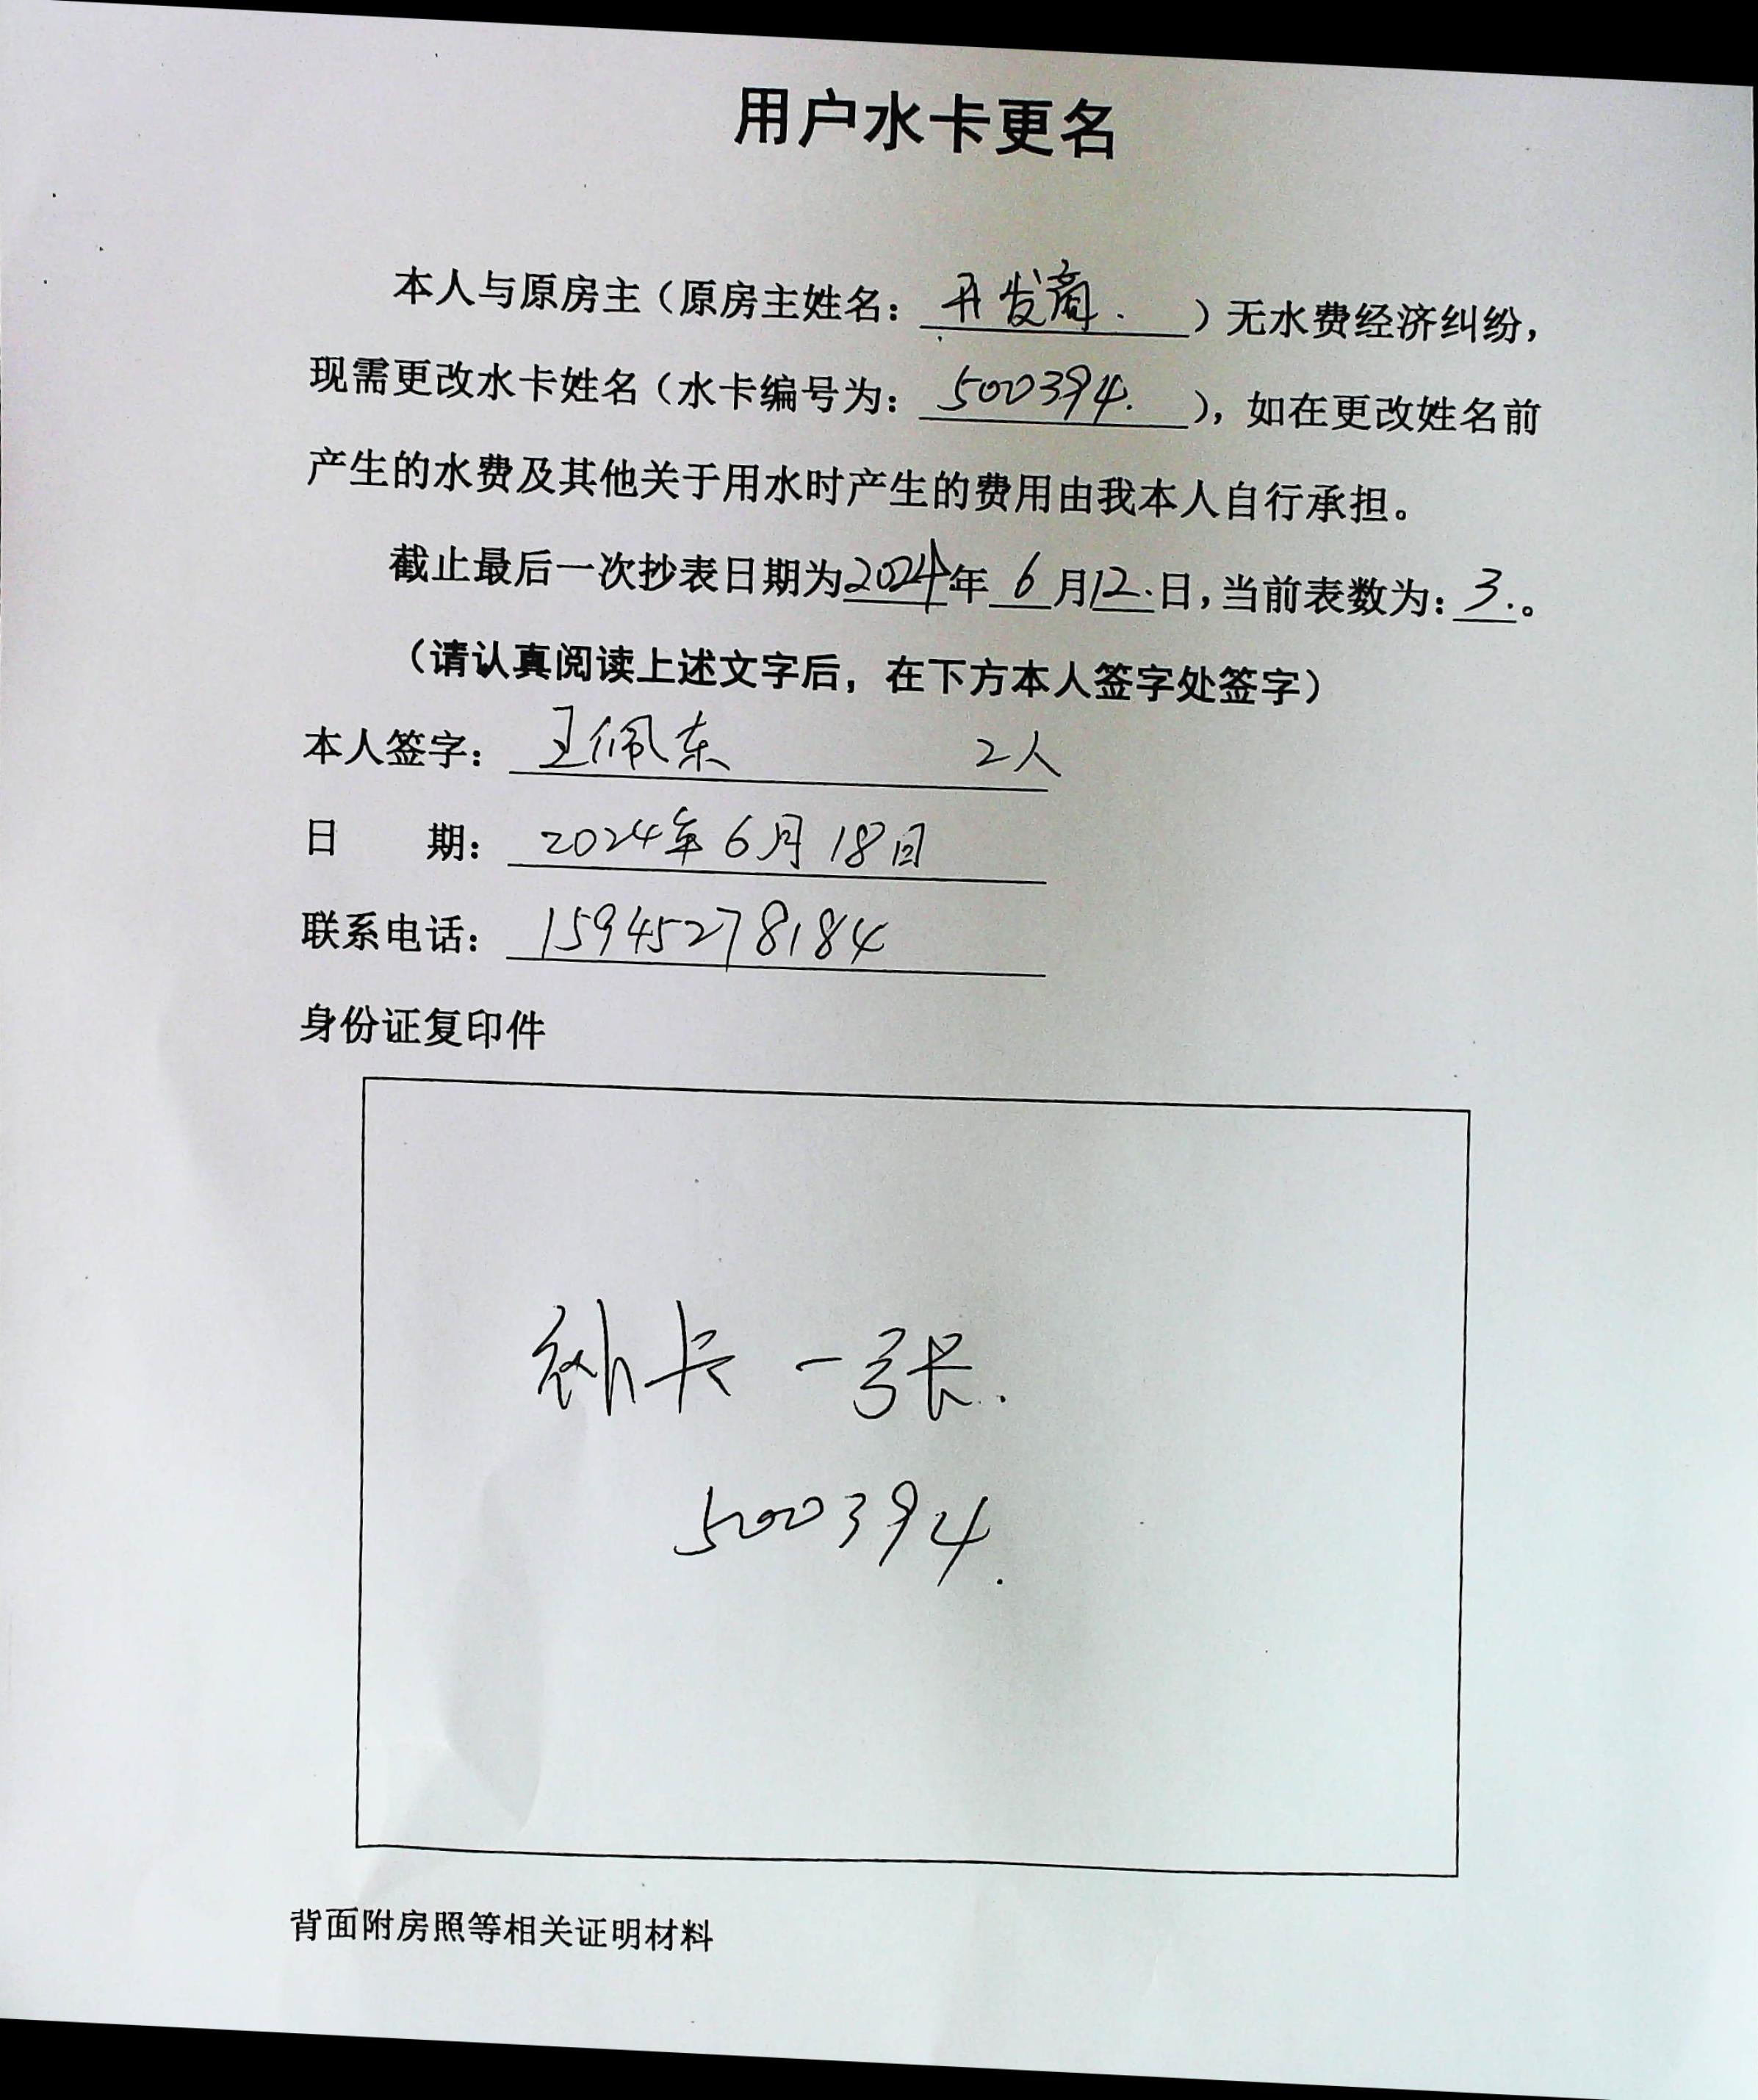 用户水卡更名
本人与原房主（原房主姓名：开发商.）无水费经济纠纷，
现需更改水卡姓名（水卡编号为：500394.），如在更改姓名前
产生的水费及其他关于用水时产生的费用由我本人自行承担。
截止最后一次抄表日期为2024年6月12.日，当前表数为：3.。
（请认真阅读上述文字后，在下方本人签字处签字）
本人签字：王佩东 2人
日 期：2024年6月18日
联系电话：15945278184
身份证复印件
补卡一张.
500394.
背面附房照等相关证明材料